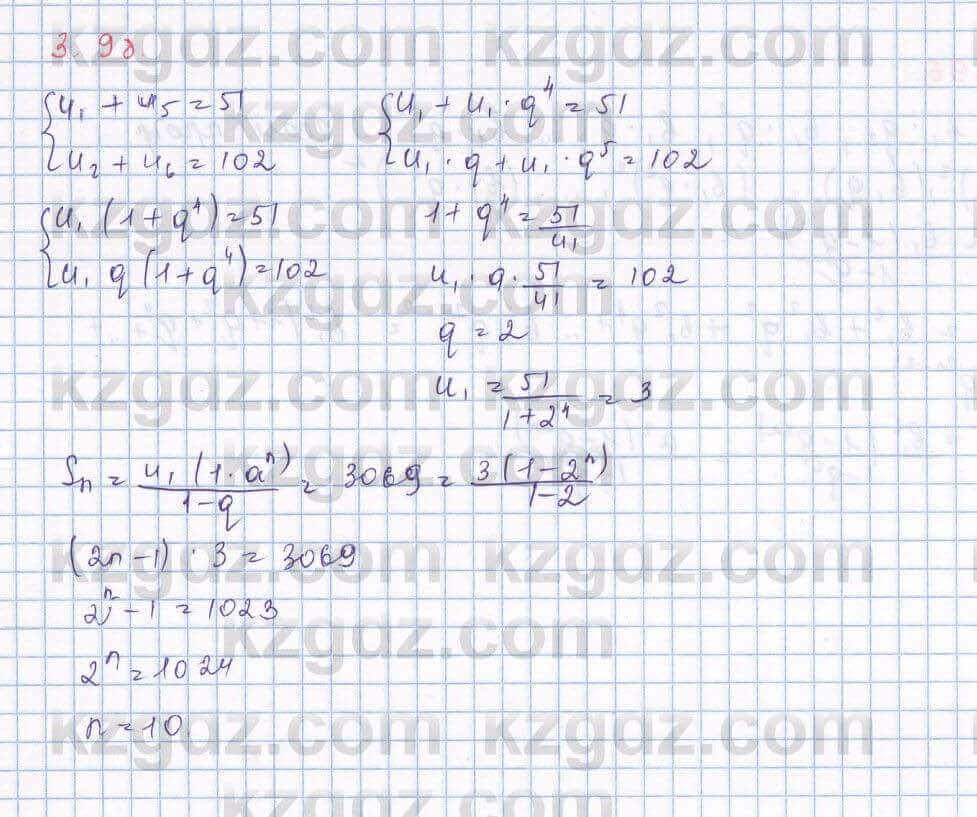 3. 98.
{u₁ + u₅ = 51 {u₁ + u₁ · q⁴ = 51
{u₂ + u₆ = 102 {u₁ · q + u₁ · q⁵ = 102
{u₁ (1 + q⁴) = 51 1 + q⁴ = 51/u1
{u₁ q (1 + q⁴) = 102 u₁ · q · 51/u1 = 102
q = 2
u₁ = 51/(1 + 2⁴) = 3
Sₙ = u₁ (1 · aⁿ)/(1 - q) = 3069 = 3 (1 - 2ⁿ)/(1 - 2)
(2n - 1) · 3 = 3069
2ⁿ - 1 = 1023
2ⁿ = 1024
n = 10.
kzgdz.com kzgdz.com
kzgdz.com kzgdz.com
kzgdz.com kzgdz.com
kzgdz.com kzgdz.com
kzgdz.com kzgdz.com
kzgdz.com
kzgdz.com kzgdz.com
kzgdz.com